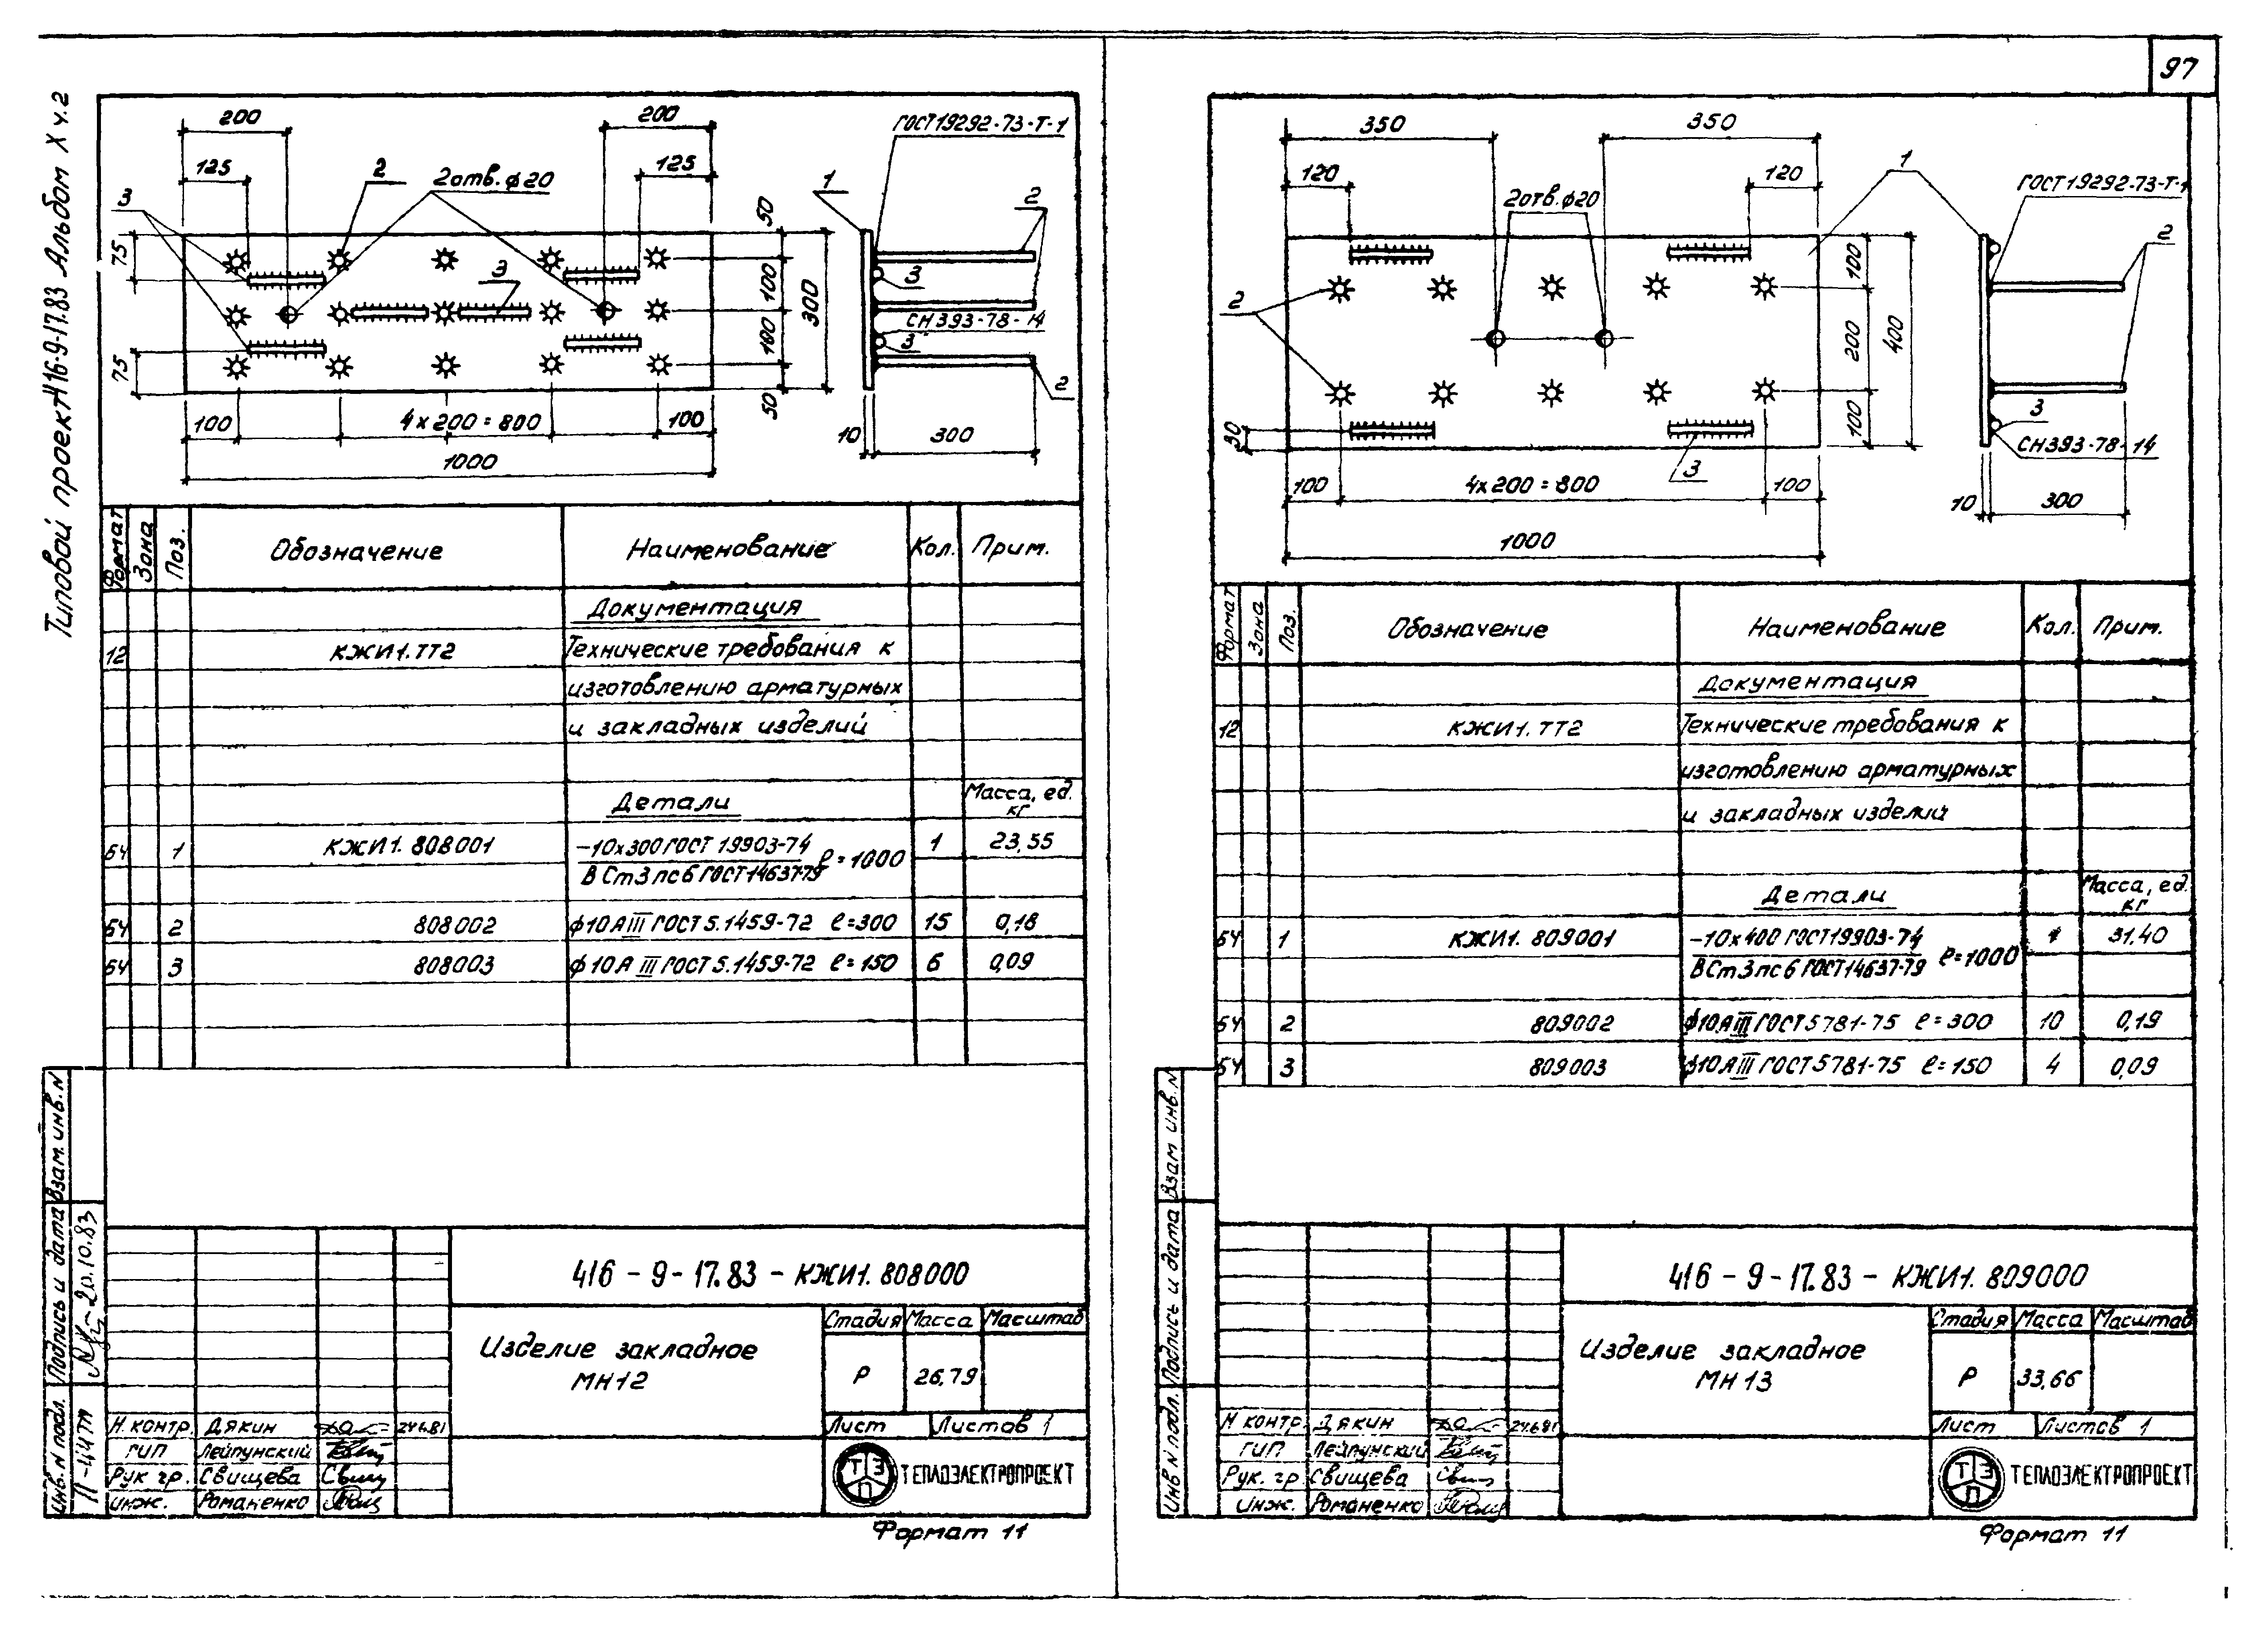 97
Типовой проект 416-9-17.83 Альбом X ч.2
200
200
ГОСТ 19292-73-Т-1
125
2
2 отв. ф20
125
1
3
50
2
75
3
100
300
3
СН 393-78-14
3
100
75
2
50
100
4х200=800
100
10
300
1000
Формат
Зона
Поз.
Обозначение
Наименование
Кол.
Прим.
Документация
12
КЖИ1.ТТ2
Технические требования к
изготовлению арматурных
и закладных изделий
Детали
Масса, ед.
кг
БЧ
1
КЖИ1. 808001
–10х300 ГОСТ 19903-74
ВСт3пс6 ГОСТ14637-79
ℓ=1000
1
23,55
БЧ
2
808002
ф10АIII ГОСТ 5.1459-72 ℓ=300
15
0,18
БЧ
3
808003
ф10А III ГОСТ 5.1459-72 ℓ=150
6
0,09
Взам. инв. N
Подпись и дата
20.10.83
Инв. N подл.
416 - 9 - 17.83 - КЖИ1. 808000
Изделие закладное
МН12
Стадия
Масса
Масштаб
Р
26,79
Лист
Листов 1
Н. контр.
Дякин
24.6.81
ГИП
Лейпунский
Рук. гр.
Свищева
Инж.
Романенко
ТЭП
ТЕПЛОЭЛЕКТРОПРОЕКТ
Формат 11
350
350
1
120
120
ГОСТ 19292-73-Т-1
2 отв. ф20
2
100
2
200
400
3
100
30
СН 393-78-14
3
100
4х200=800
100
10
300
1000
Формат
Зона
Поз.
Обозначение
Наименование
Кол.
Прим.
Документация
12
КЖИ1. ТТ2
Технические требования к
изготовлению арматурных
и закладных изделий
Детали
Масса, ед.
кг
БЧ
1
КЖИ1. 809001
–10х400 ГОСТ19903-74
ВСт3пс6 ГОСТ14637-79
ℓ=1000
1
31,40
БЧ
2
809002
ф10АIII ГОСТ 5781-75 ℓ=300
10
0,19
БЧ
3
809003
ф10АIII ГОСТ 5781-75 ℓ=150
4
0,09
Взам инв. N
Подпись и дата
Инв N подл.
416 - 9 - 17.83 - КЖИ1. 809000
Изделие закладное
МН 13
Стадия
Масса
Масштаб
Р
33,66
Лист
Листов 1
Н контр.
Дякин
24.6.81
ГИП
Лейпунский
Рук. гр
Свищева
Инж.
Романенко
ТЭП
ТЕПЛОЭЛЕКТРОПРОЕКТ
Формат 11